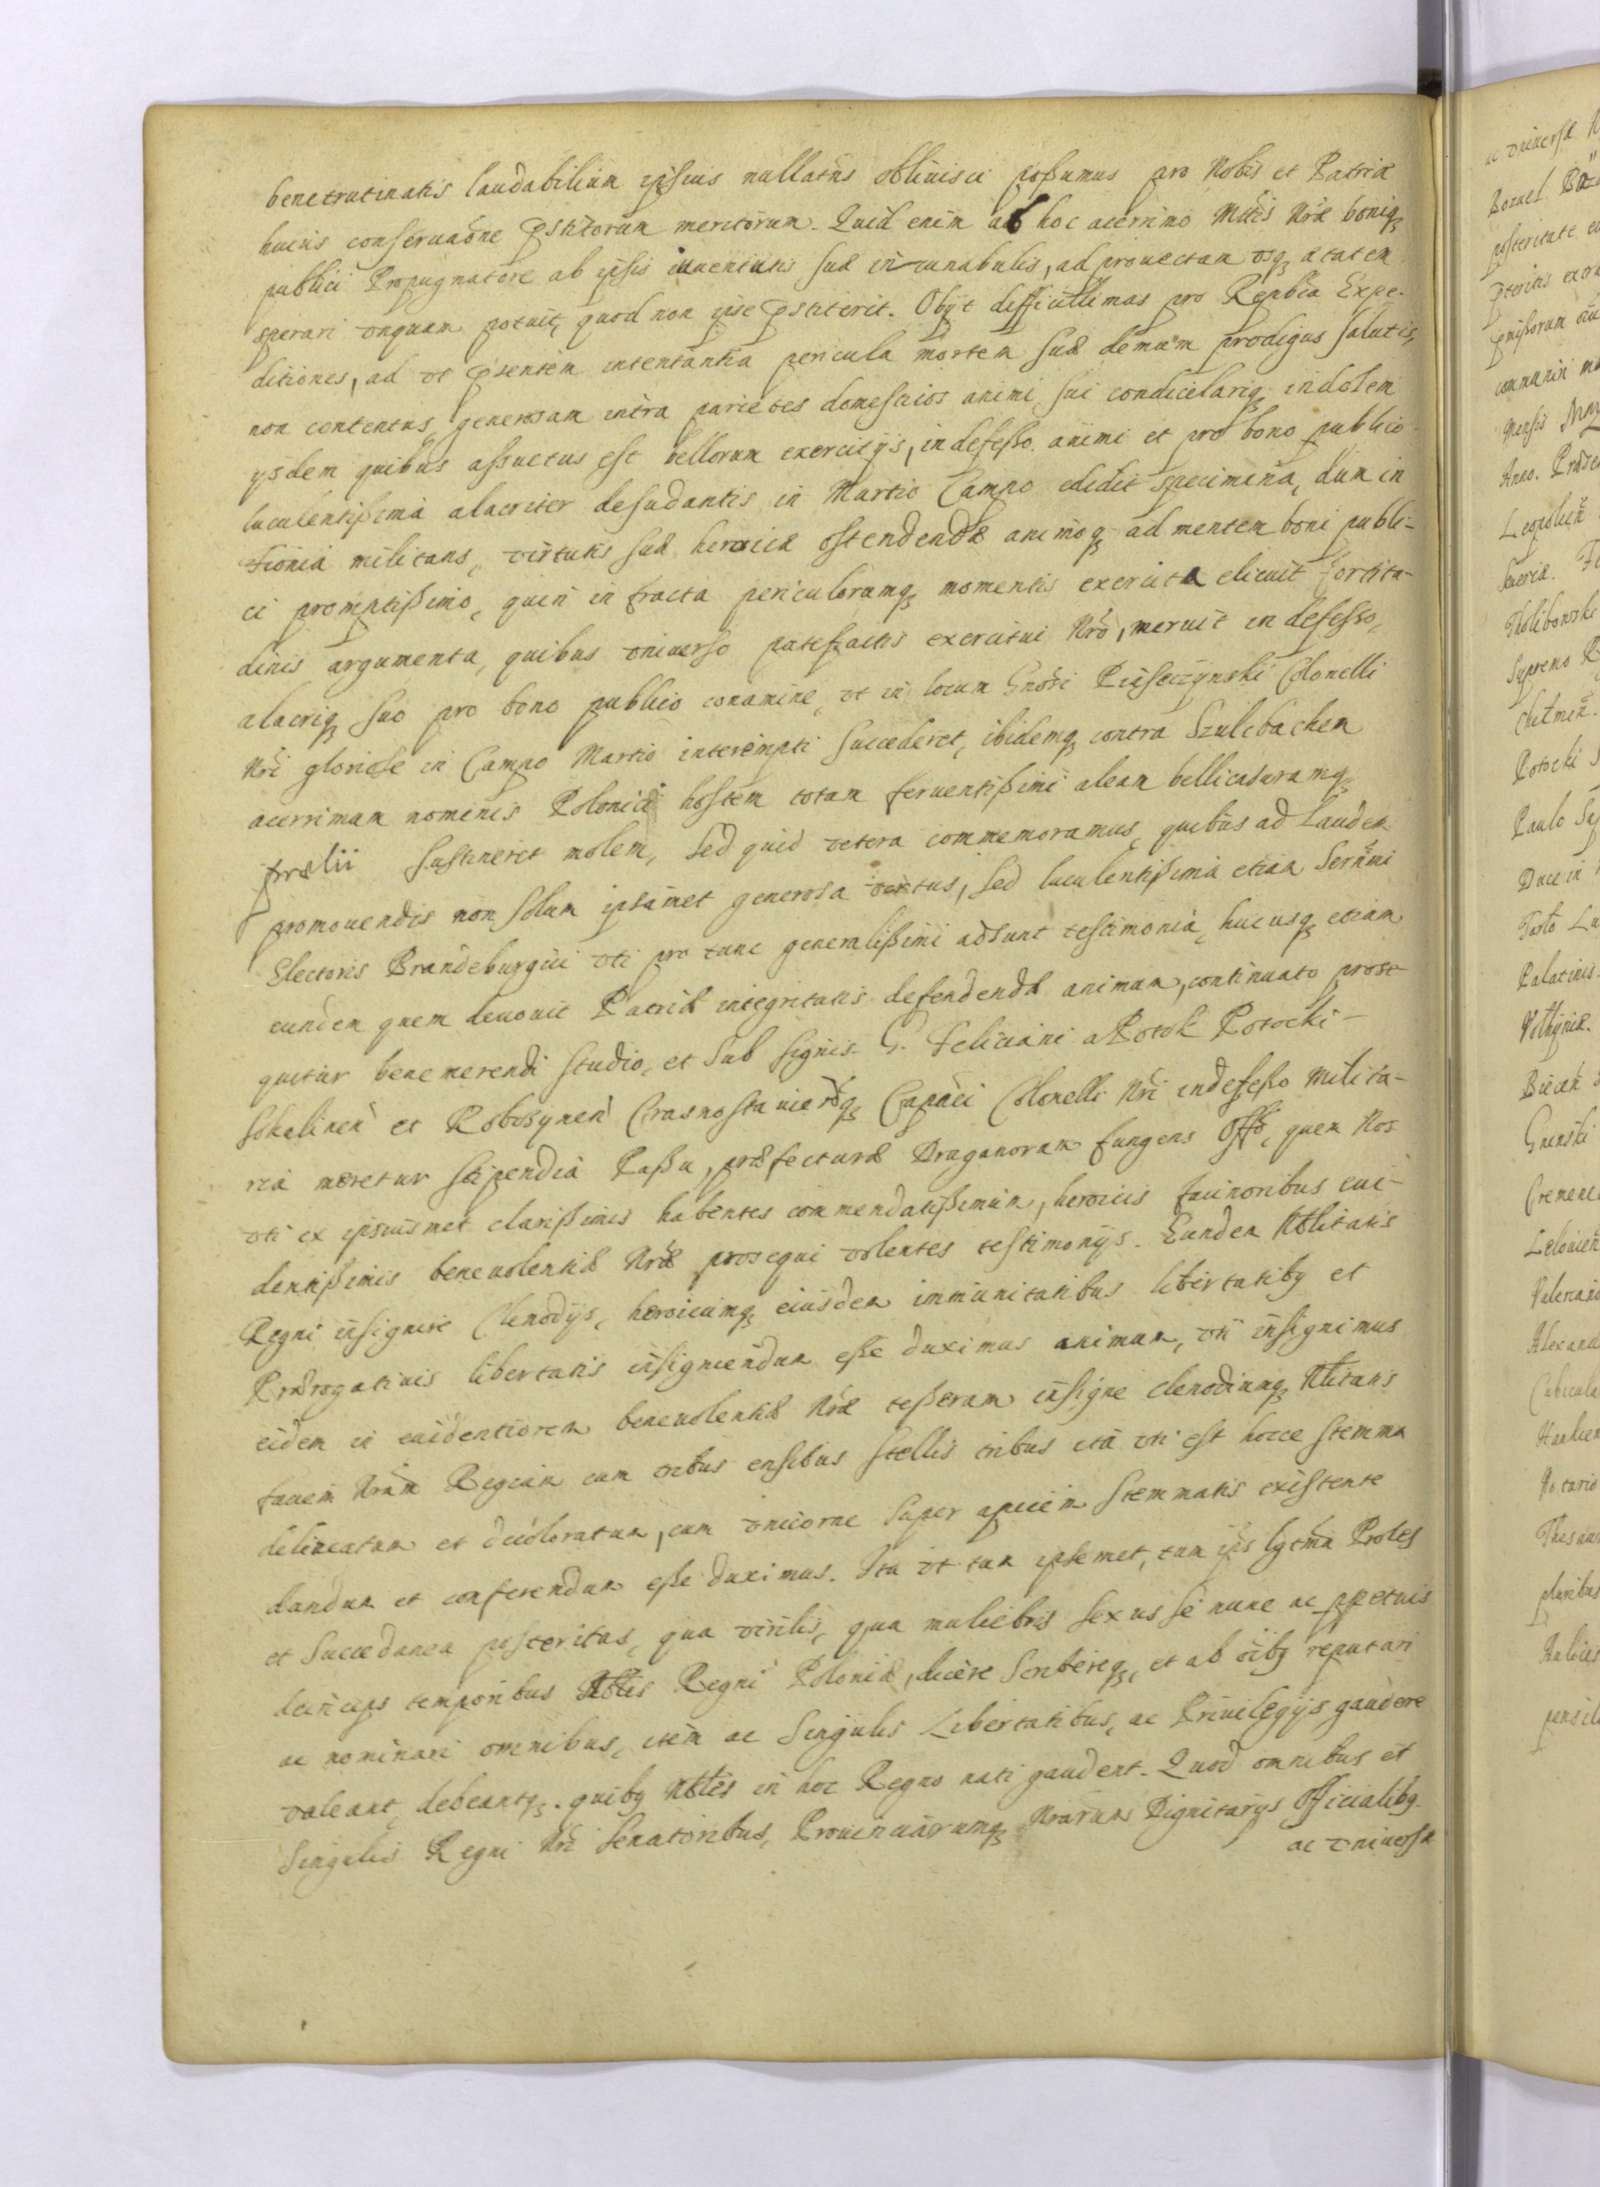 benetrutinatis laudabilium ipsius nullatns obliuisci possumus pro Nobis et Patriæ
huius conseruaone pstitorum meritorum. Quid enim ab hoc acerrimo Mttis Nræ boniq
publici Propugnatore ab ipsis iuuentutis suæ incunabulis, ad prouectam vsq ætatem
sperari vnquam potuit, quod non ipse pstiterit. Obijt difficillimas pro Repblca Expe-
ditiones, ad vt psentem intentantia pericula mortem suæ demum prodigus salutis,
non contentus, generosam intra parietes domesticos animi sui condi celariq indolem
ijsdem quibus assuetus est bellorum exercitijs, indefesso animi et pro bono publico
luculentissima alacriter desudantis in Martio Campo edidit specimina, dum in
Fionia militans, virtutis suæ heroicæ ostendendæ animoq ad mentem boni publi-
ci promptissimo, quin infracta periculorumq momentis exercita elicuit fortitu-
dinis argumenta, quibus vniuerso patefactis exercitui Nro, meruit indefesso,
alacriq suo pro bono publico conamine, vt in locum Gnosi Piiseczynski Colonelli
Nri gloriose in Campo Martio interempti succederet, ibidemq contra Szulcbachem
acerrimum nominis Polonici hostem totam feruentissimi aleam bellicæ suramq
prælii sustineret molem, sed quid vetera commemoramus, quibus ad laudem
promouendis non solum ipsamet generosa virtus, sed luculentissima etiam Sernmi
Electoris Brandeburgici vti pro tunc generalissimi adsunt testimonia, hucusq etiam
eundem quem deuouit Patriæ integritatis defendendæ animum, continuato prose-
quitur benemerendi studio, et sub signis G. Feliciani a Potok Potocki
Sokalinen et Robosynen Crasnostauienq Capnei Colonelli Nri indefesso milita-
ria meretur stipendia Passu, præfecturæ Draganorum fungens Offo, quem Nos
vti ex ipsiusmet clarissimis habentes commendatissimum, heroicis facinoribus eui-
dentissimis beneuolentiæ Nræ prosequi volentes testimonijs. Eundem Nblitatis
Regni insignire Clenodijs, heroicumq eiusdem immunitatibus libertatibq et
Prærogatiuis libertatis insigniendum esse duximus animum, vti insignimus
eidem in euidentiorem beneuolentiæ Nræ tesseram insigne clenodiumq Nblitatis
fauem Nram Regiam cum tribus ensibus stellis tribus ita vti est hocce stemma
delineatum et decoloratum, cum vnicorne super apicem stemmatis existente
dandum et conferendum esse duximus. Ita vt tam ipsemet, tam ips lgtma Proles
et Succedanea posteritas, qua virilis, qua muliebris sexus se nunc ac ppetuis
deinceps temporibus Nbles Regni Poloniæ, dicere scribereq, et ab oibq reputari
ac nominari omnibus, item ac singulis Libertatibus, ac Priuilegijs gaudere
valeant, debeantq. quibq Nbles in hoc Regno nati gaudent. Quod omnibus et
singulis Regni Nri Senatoribus, Prouinciarumq Nrarum Dignitarijs Officialibq
ac vniuersæ